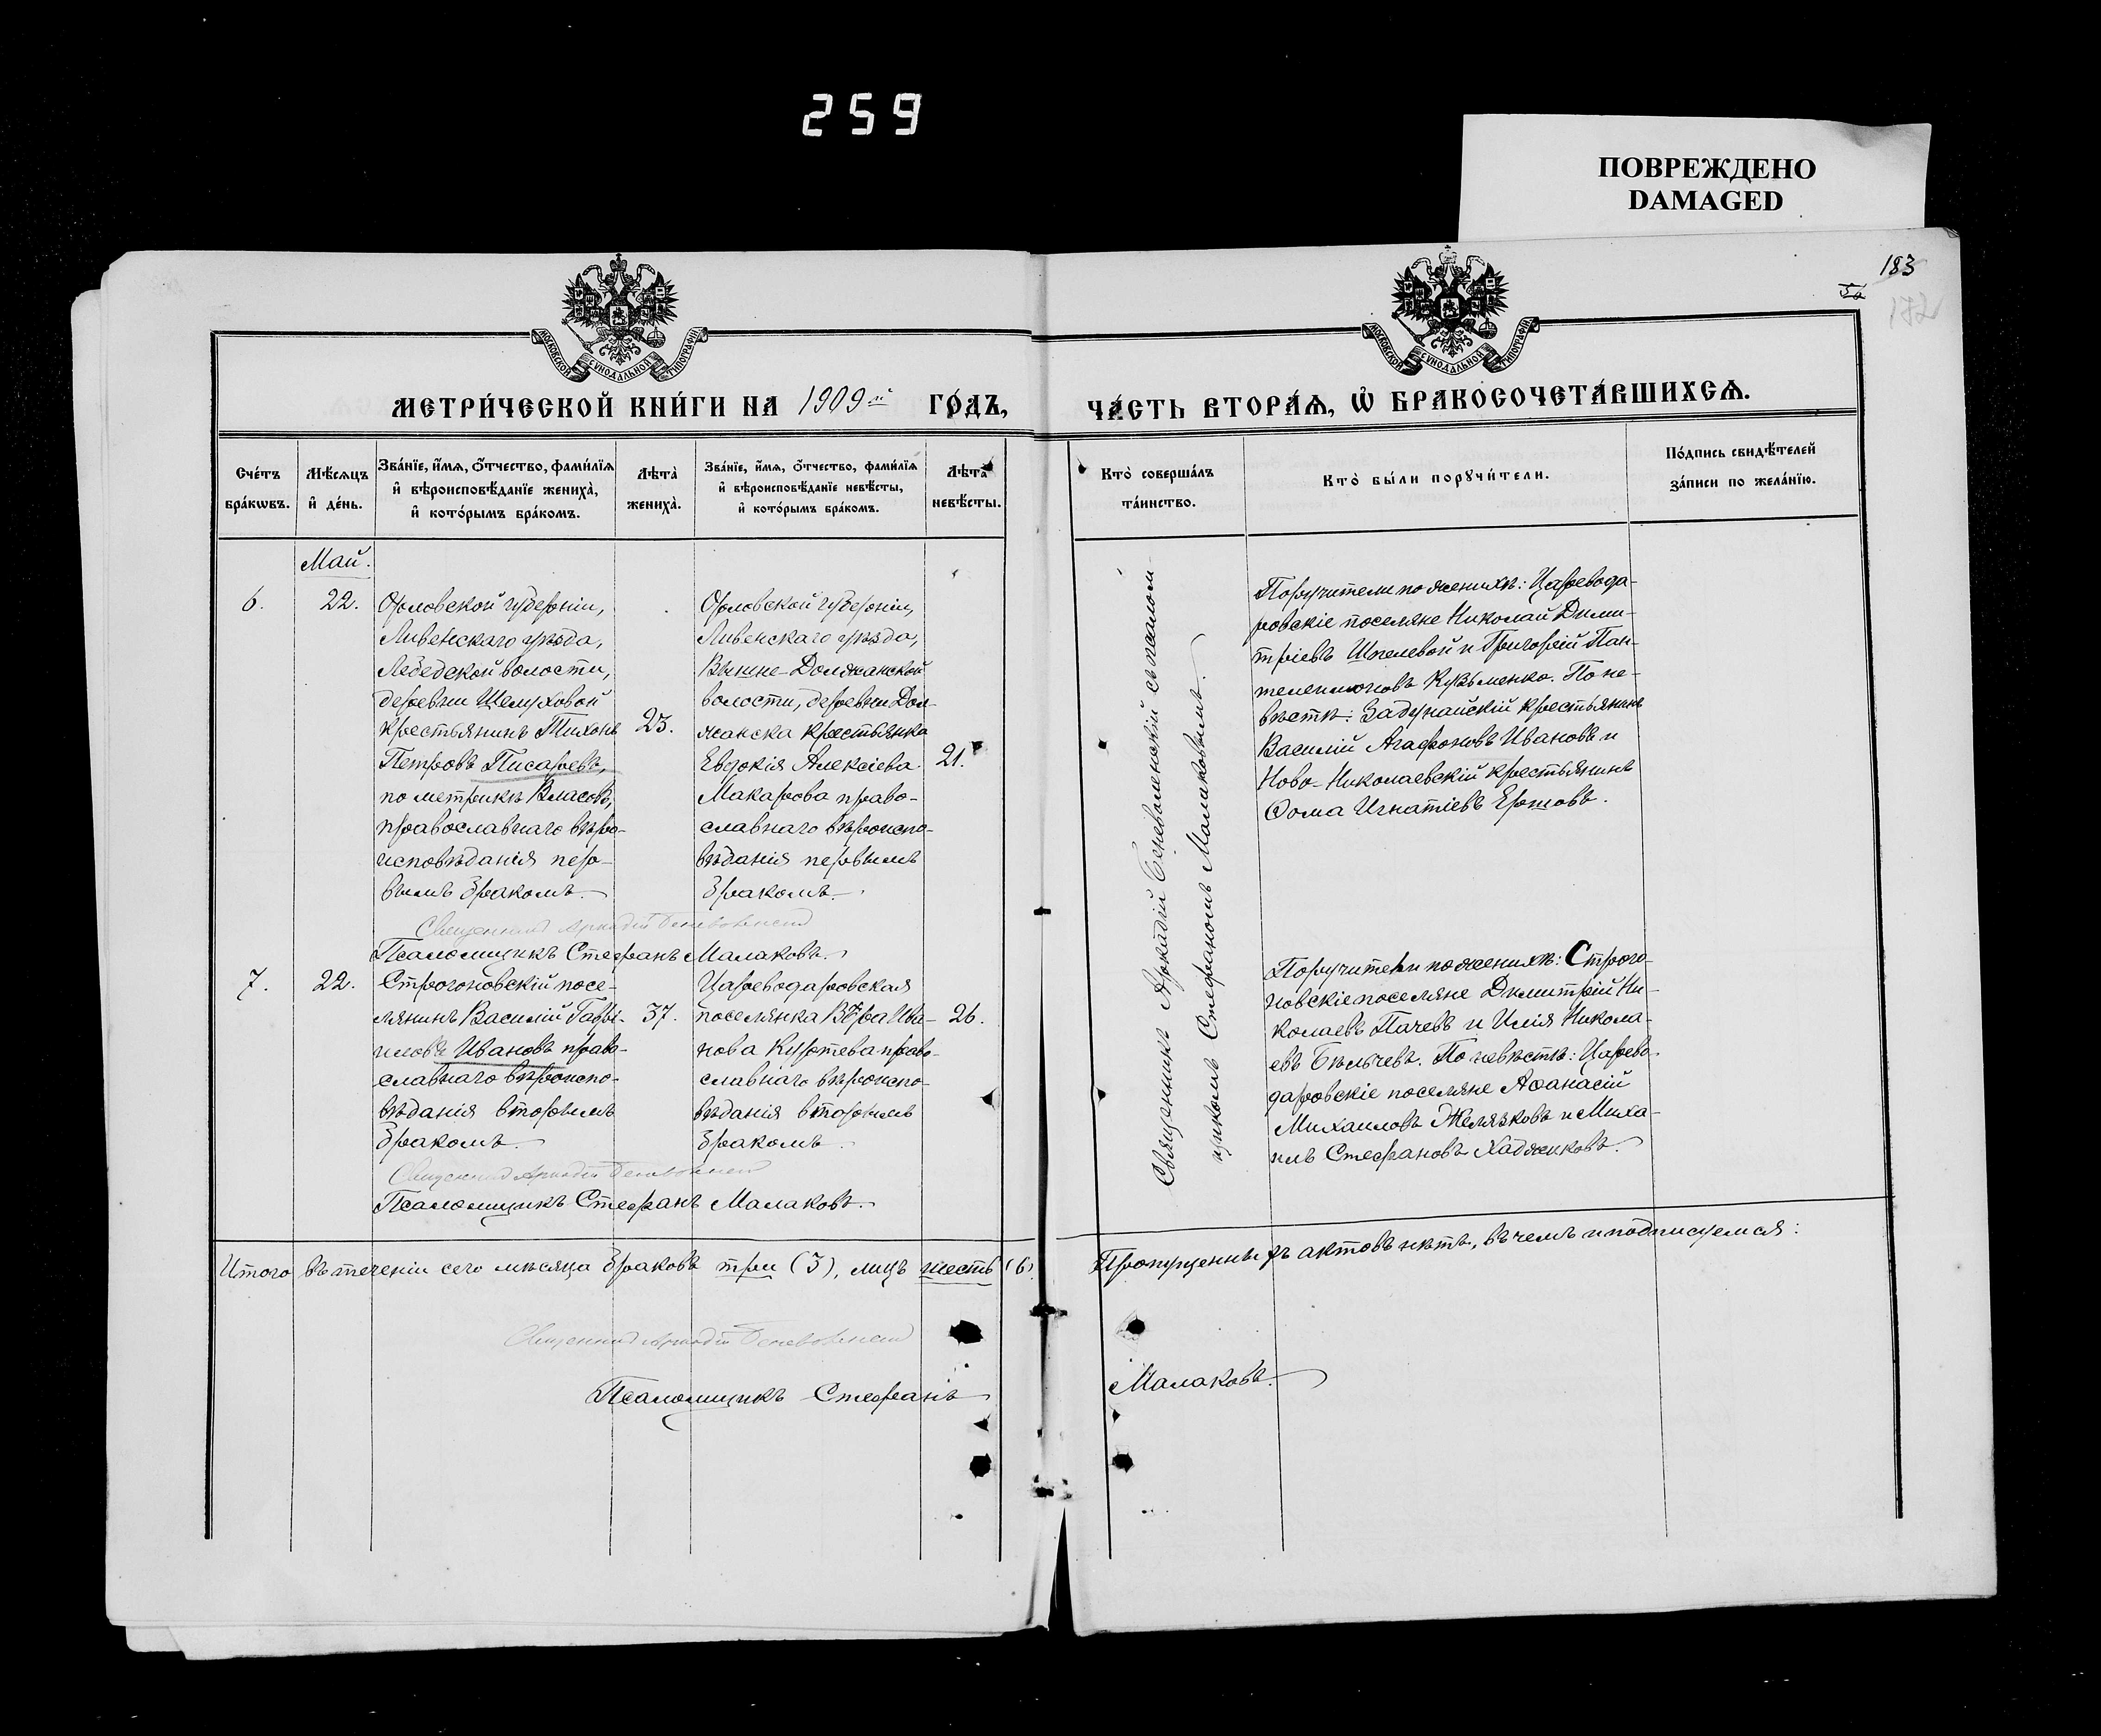 259
ПОВРЕЖДЕНО
DAMAGED
183
МОСКОВСКОЙ СУНОДАЛЬНОЙ ТИПОГРАФІИ
МОСКОВСКОЙ СУНОДАЛЬНОЙ ТИПОГРАФІИ
МЕТРИ́ЧЕСКОЙ КНИ́ГИ НА 1909й ГО́ДЪ,
ЧА́СТЬ ВТОРА́Ѧ, Ѡ҆ БРАКОСОЧЕТА́ВШИХСѦ.
Сче́тъ
бра́кѡвъ.
Мѣ́сѧцъ
и҆ де́нь.
Зва́нїе, и҆́мѧ, ѻ҆́тчество, фами́лїѧ
и҆ вѣроисповѣ́данїе жениха̀,
и҆ кото́рымъ бра́комъ.
Лѣта̀
жениха̀.
Зва́нїе, и҆́мѧ, ѻ҆́тчество, фами́лїѧ
и҆ вѣроисповѣ́данїе невѣ́сты,
и҆ кото́рымъ бра́комъ.
Лѣта̀
невѣ́сты.
Кто̀ соверша́лъ
та́инство.
Кто̀ бы́ли порꙋчи́тели.
По́дпись свидѣ́телей
за́писи по жела́нїю.
Май.
6.
22.
Орловской губерніи,
Ливенскаго уѣзда,
Лебедской волости,
деревни Шелуховой
крестьянинъ Тихонъ
Петровъ Писаревъ,
по метрикѣ Власовъ,
православнаго вѣро-
исповѣданія пер-
вымъ бракомъ.
23.
Орловской губерніи,
Ливенскаго уѣзда,
Вышне-Должанской
волости, деревни Дол-
жанска крестьянка
Евдокія Алексіева
Макарова право-
славнаго вѣроиспо-
вѣданія первымъ
бракомъ.
21.
Священникъ Аркадій Беневоленскій съ псалом-
щикомъ Стефаномъ Малаковымъ.
Поручители по женихѣ: Царевода-
ровскіе поселяне Николай Дими-
тріевъ Шпелевой и Григорій Пан-
телеимоновъ Кузьменко. По не-
вѣстѣ: Задунайскій крестьянинъ
Василій Агафоновъ Ивановъ и
Ново-Николаевскій крестьянинъ
Ѳома Игнатіевъ Ершовъ.
Священникъ Аркадій Беневоленскій
Псаломщикъ Стефанъ Малаковъ.
7.
22.
Строгоновскій посе-
лянинъ Василій Гаврі-
иловъ Ивановъ право-
славнаго вѣроиспо-
вѣданія вторымъ
бракомъ.
37.
Цареводаровская
поселянка Вѣра Ива-
нова Куртева право-
славнаго вѣроиспо-
вѣданія вторымъ
бракомъ.
26.
Поручители по женихѣ: Строго-
новскіе поселяне Димитрій Ни-
колаевъ Пачевъ и Илія Никола-
евъ Бѣльчевъ. По невѣстѣ: Царево-
даровскіе поселяне Аѳанасій
Михаиловъ Желязковъ и Миха-
илъ Стефановъ Хаджиковъ.
Священникъ Аркадій Беневоленскій
Псаломщикъ Стефанъ Малаковъ.
Итого въ теченіи сего мѣсяца браковъ три (3), лицъ шесть (6). Пропущенныхъ актовъ нѣтъ, въ чемъ и подписуемся:
Священникъ Аркадій Беневоленскій
Псаломщикъ Стефанъ Малаковъ.